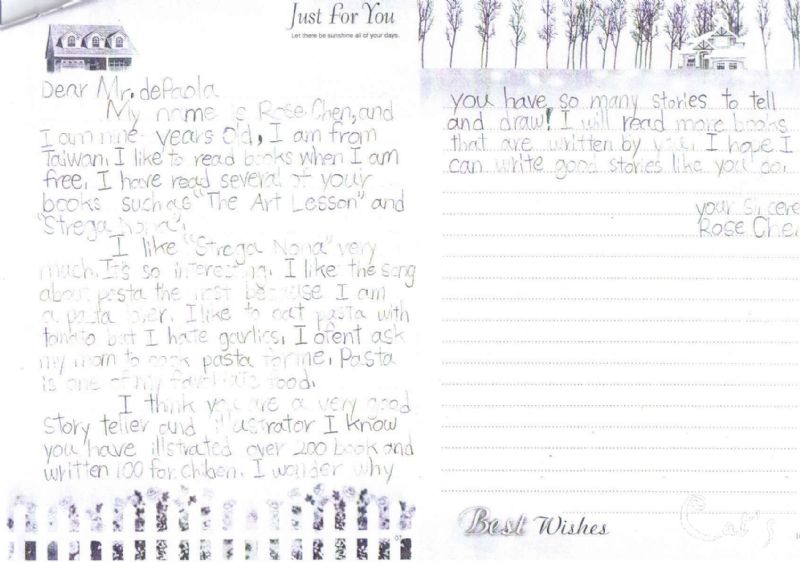 Just for You
Let there be sunshine all of your days.
Dear Mr. dePaola
My name is Rose Chen, and
I am nine years old, I am from
Taiwan. I like to read books when I am
free. I have read several of your
books such as "The Art Lesson" and
"Strega Nona".
I like "Strega Nona" very
much. It's so interesting. I like the song
about pasta the most because I am
a pasta lover. I like to eat pasta with
tomato but I hate garlics. I ofent ask
my mom to cook pasta for me. Pasta
is one of my food.
I think you are a very good
story teller and illustrator I know
you have illstrated over 200 book and
written 100 for chiben. I wonder why
you have so many stories to tell
and draw! I will read more books
that are written by you. I hope I
can write good stories like you do.
your sincere
Rose Chen
Best Wishes
Cat's